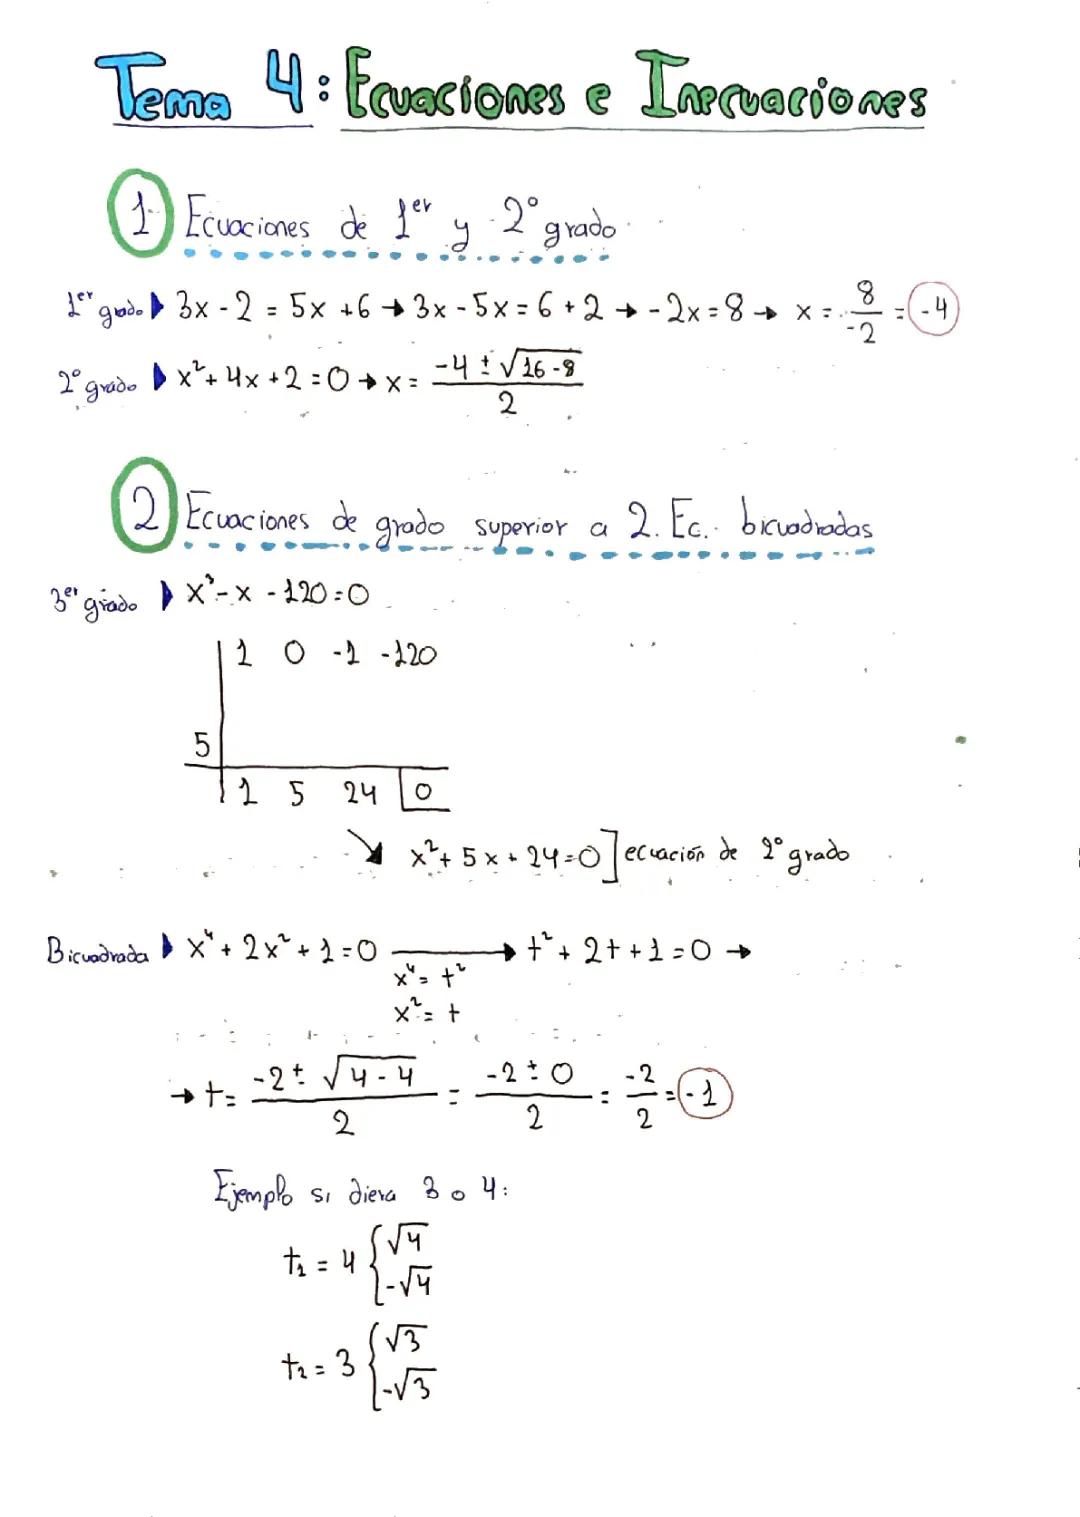 Tema 4: Ecuaciones e Inecuaciones
1 Ecuaciones de 1er y 2º grado
1er grado ▶ 3x - 2 = 5x + 6 → 3x - 5x = 6 + 2 → -2x = 8 → x = 8/-2 = -4
2º grado ▶ x² + 4x + 2 = 0 → x = (-4 ± √16 - 8)/2
2 Ecuaciones de grado superior a 2. Ec. bicuadradas
3er grado ▶ x³ - x - 120 = 0
1 0 -1 -120
5
1 5 24 0
↘ x² + 5x + 24 = 0] ecuación de 2º grado
Bicuadrada ▶ x⁴ + 2x² + 1 = 0 → t² + 2t + 1 = 0 →
x⁴ = t²
x² = t
→ t = (-2 ± √4 - 4)/2 = (-2 ± 0)/2 = -2/2 = -1
Ejemplo si diera 3 o 4:
t₁ = 4 { √4
-√4
t₂ = 3 { √3
-√3